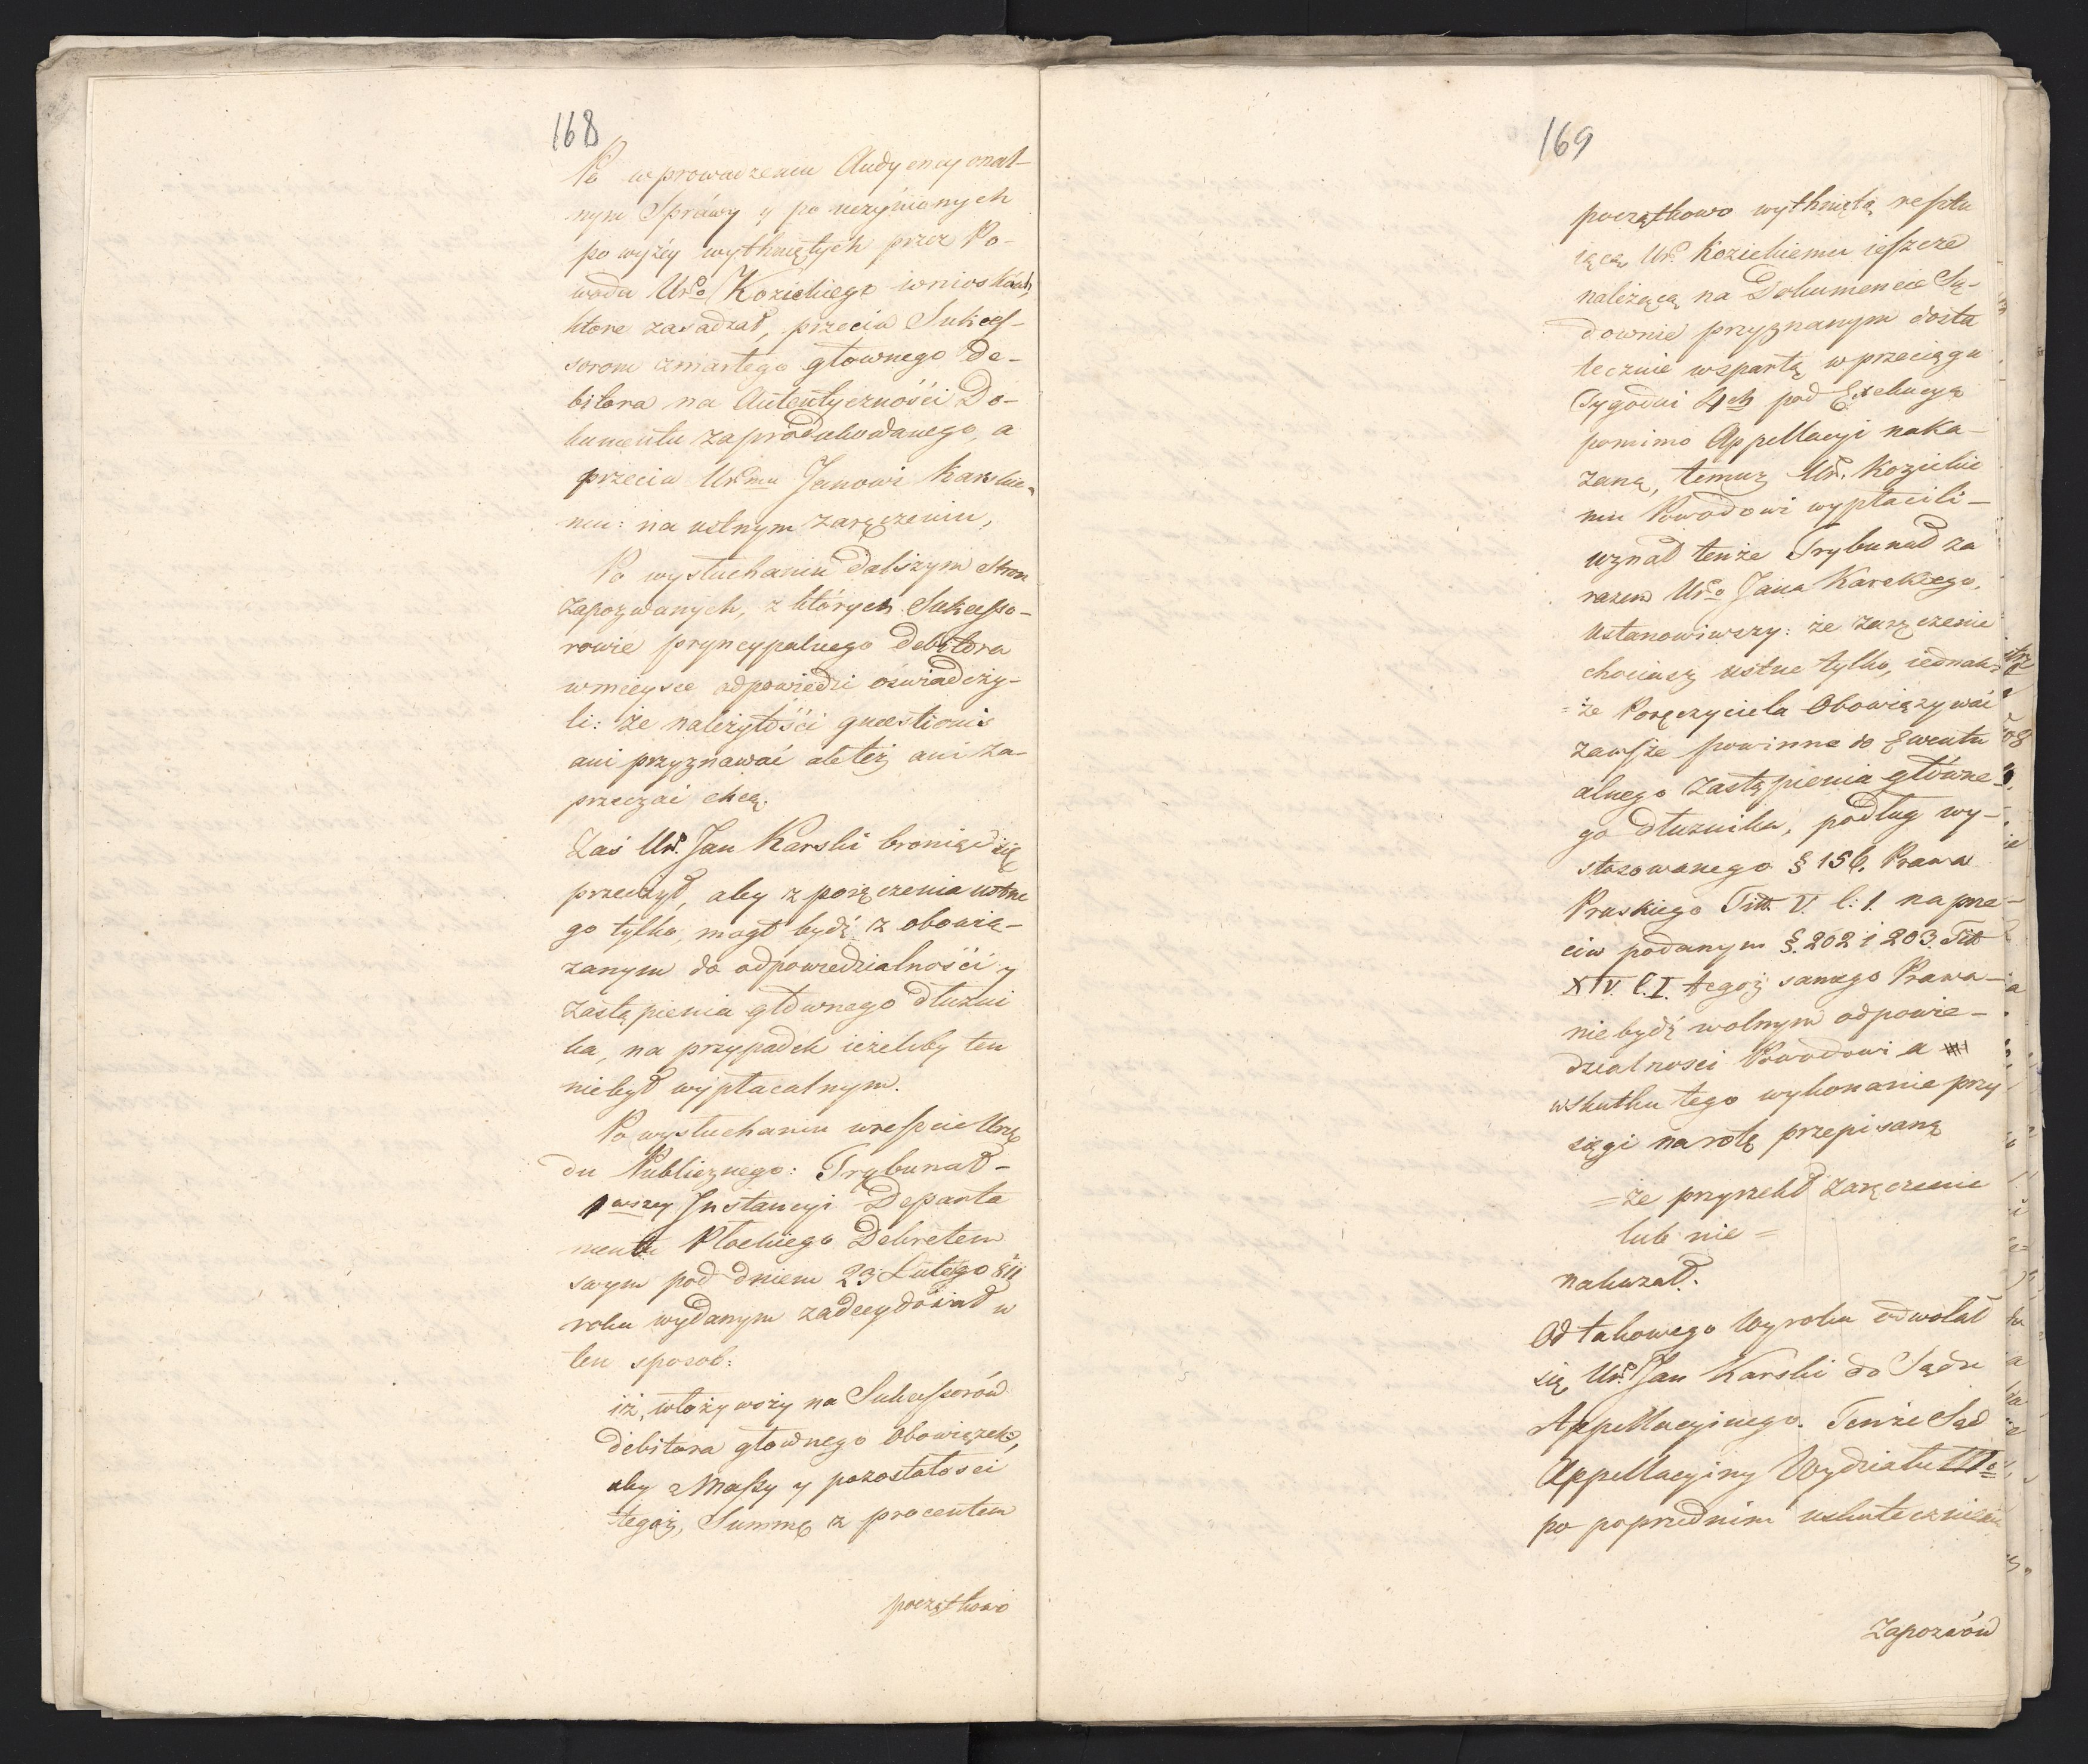 168
Po wprowadzeniu Audyencyonal-
nym Sprawy y po uczynionych
powyżey wytkniętych przez Po-
woda Uro Kozickiego wnioskach,
które zasadzał, przeciw Sukces-
sorom zmarłego głownego De-
bitora na Autentyczności Do-
kumentu zaprodukowanego, a
przeciw Uromu Janowi Karskie-
mu: na ustnym zaręczeniu,
Po wysłuchaniu dalszym Stron
Zapozwanych, z których Sukcesso-
rowie pryncypalnego Debitora
wmieysce odpowiedzi oświadczy-
li: że należytości quaestionis
ani przyznawać aleteż ani za-
przeczać chcą.
Zaś Ur. Jan Karski broniąc się
przeczył, aby z poręczenia ustne
go tylko, mogł bydź z obowią-
zanym do odpowiedzialności y
zastąpienia głownego dłużni
ka, na przypadek ieżeliby ten
niebył wypłacalnym.
Po wysłuchaniu wreszcie Urzę
du Publicznego: Trybunał-
1wszey Instancyi Departa
mentu Płockiego Dekretem
swym pod dniem 23 Lutego 811
roku wydanym zadecydował w
ten sposob:
iż, włożywszy na Sukcessorów
debitora głownego Obowiązek,
aby z Massy y pozostałosci
tegoż, Summę z procentem
początkowo
169
początkowo wytkniętą resztu
iącą Ur. Kozickiemu ieszcze
należącą na Dokumencie Są-
downie przyznanym dosta
tecznie wspartą wprzeciągu
Tygodni 4ch pod Exekucyą
pomimo Appellacyi naka-
zaną, temuż Ur. Kozickie
mu Powodowi wypłacili-
uznał tenże Trybunał za
razem Uro Jana Karskiego,
Ustanowiwszy: że zaręczenie
chociasz ustne tylko, iednak-
=że Poręczyciela Obowiązywać
zawsze powinno do Ewentu
alnego zastąpienia główne-
go dłużnika, podług wy-
stosowanego § 156. Prawa
Pruskiego Titt. V. C: 1. naprze-
ciw podanym §. 202 i 203. Titt
XIV. C. I. tegoż samego Prawa-
niebydź wolnym odpowie-
dzialnosci Powodowi a
wskutku tego wykonanie przy
sięgi na rotę przepisaną
=że przyrzekł zaręczenie
lub nie=
nakazał.
Od takowego Wyroku odwołał
się Ur. Jan Karski do Sądu
Appellacyinego. Tenże Sąd
Appellacyiny Wydziału IIgo
po poprzednim uskutecznieniu
Zapozwów